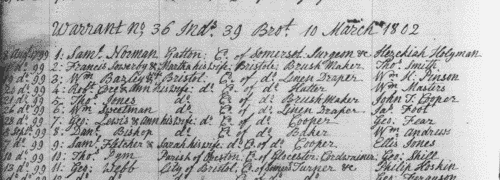 Warrant No. 36 Indrs. 39 Brot. 10 March 1802
1: Saml. Norman Yatton Co. of Somerset Surgeon & Hezekiah Holyman
d. 99 2: Francis & Martha his wife Bristol Brush Maker Thos. Smith
d. 99 3: Wm. Bazley &c. Bristol Co. of d. Linen Draper Wm. K. Pinson
d. 99 4: Robt. & Ann his wife d. Co. of d. Hatter Wm. Masters
d. 99 5: Thos. Jones d. Co. of d. Brush Maker John T. Cooper
d. 99 6: Wm. Sweetman d. Co. of d. Linen Draper Jas. Foot
d. 99 7: Geo: Lewis & Ann his wife d. Co. of d. Cooper Geo: Fear
Sept. 99 8: Danl. Bishop d. Co. of d. Baker Wm. Andrews
7 d. 99 9: Saml. Fletcher & Sarah his wife d. Co. of d. Cooper Ellis Jones
10 d. 99 10: Thos. Pym Parish of Co. of Glocester Cordwainer Geo: Shill
13 d. 99 11: Geo: Webb City of Bristol, Co. of same Turner &c. Philip Hoskin
Geo: Ferguson